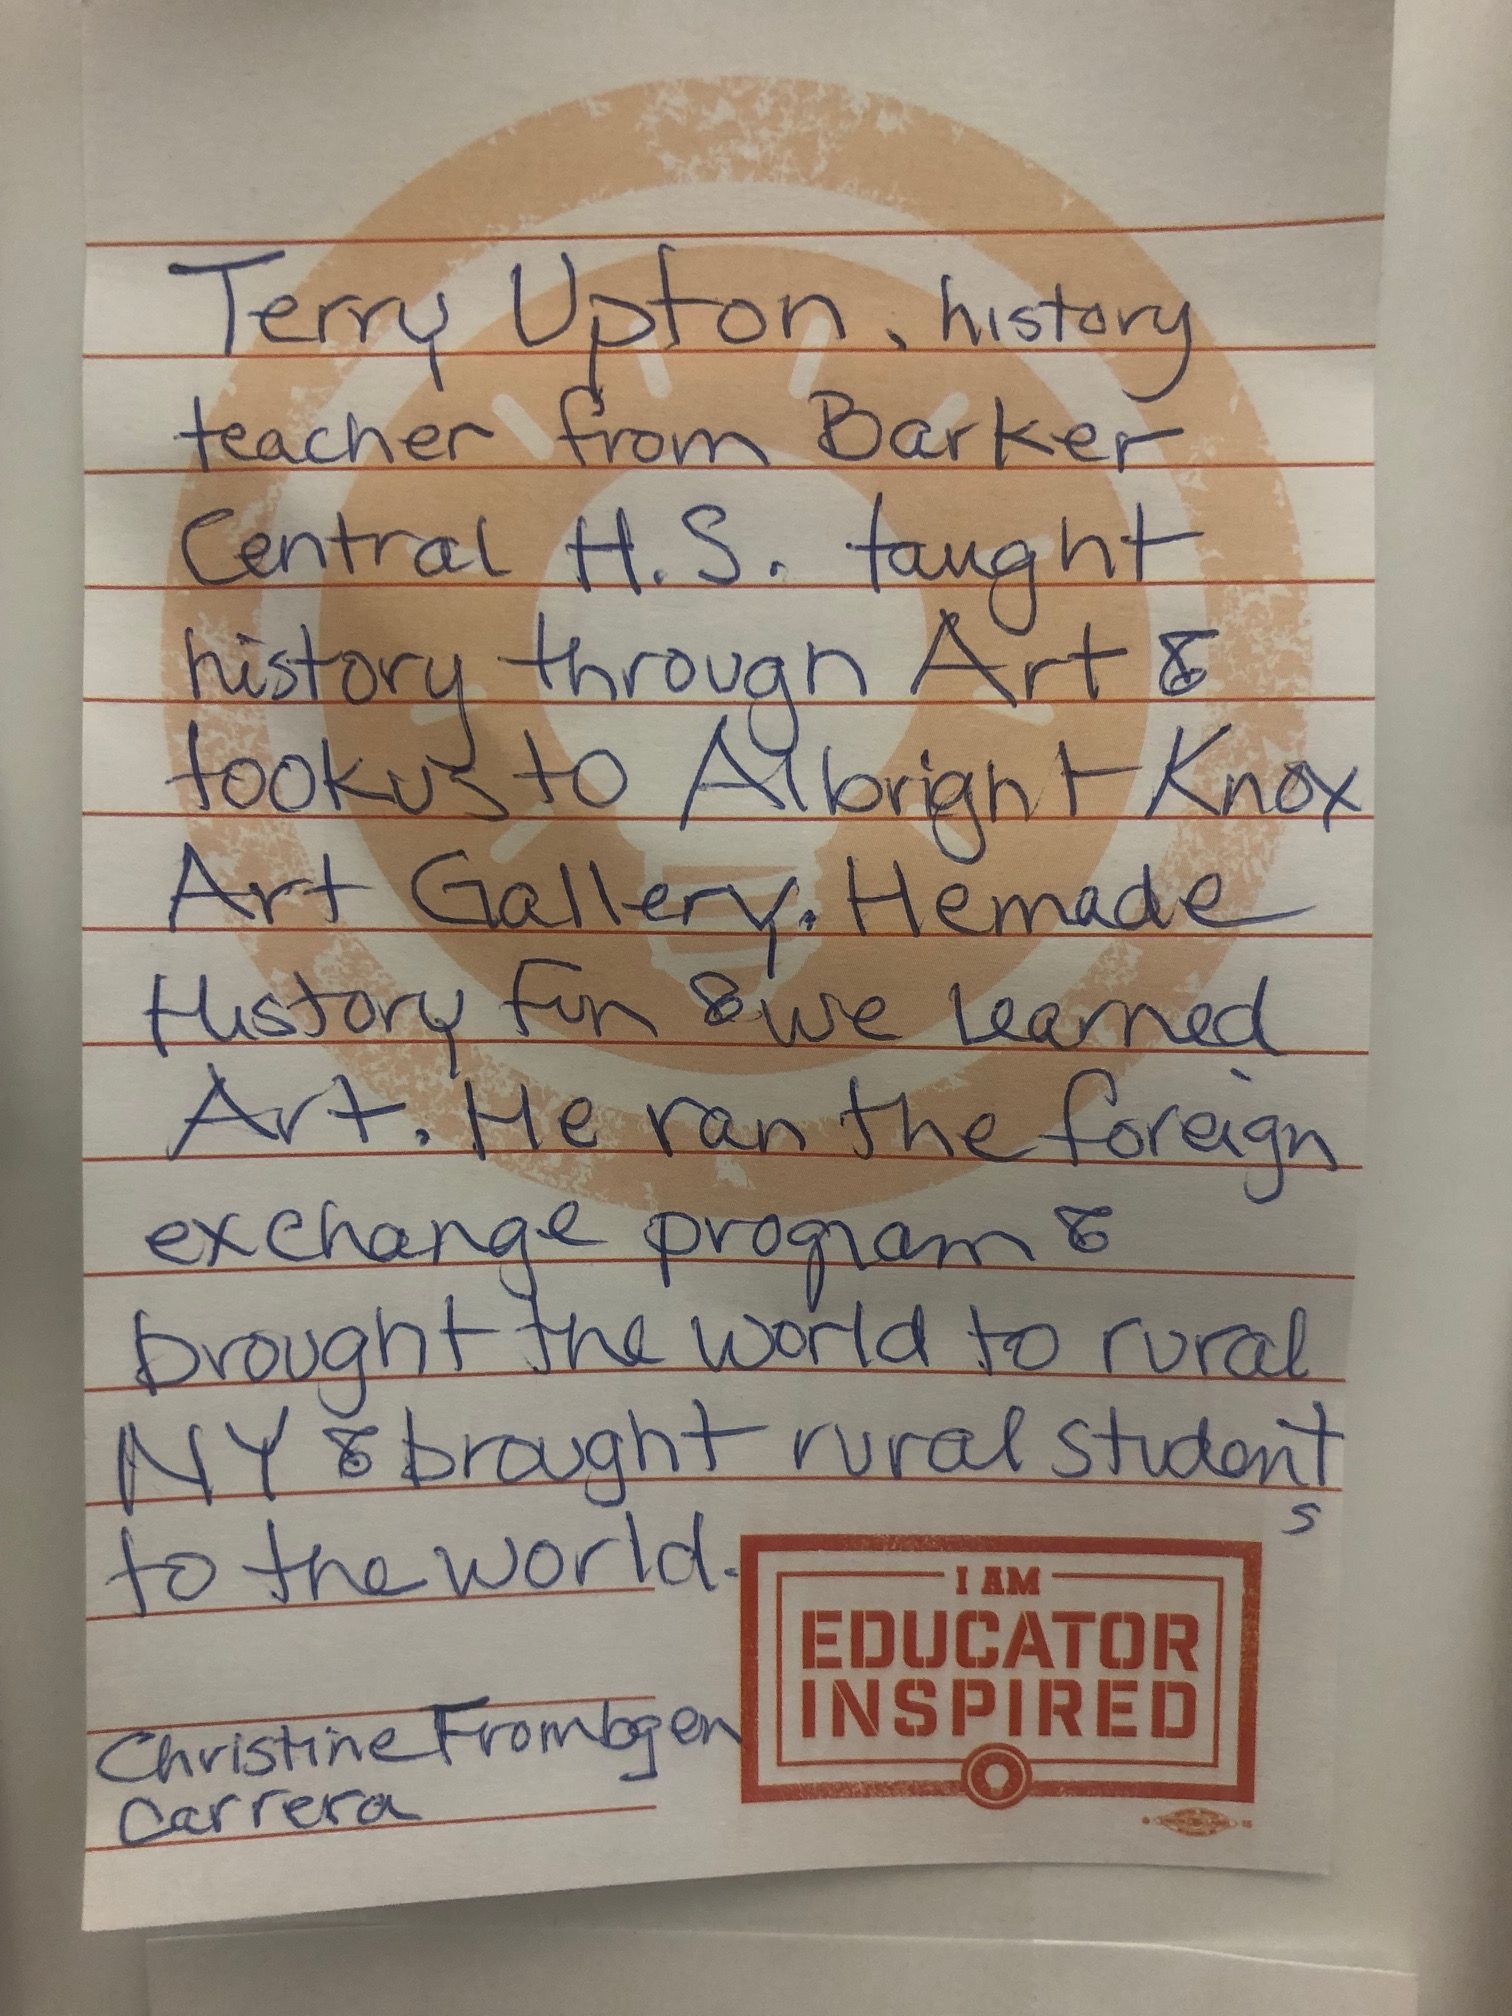 Terry Upton, history
teacher from Barker
Central H.S. taught
history through Art &
took us to Albright Knox
Art Gallery. He made
History Fun & we learned
Art. He ran the foreign
exchange program &
brought the world to rural
NY & brought rural students
to the world.
I AM
EDUCATOR
INSPIRED
Christine Frombgen
Carrera